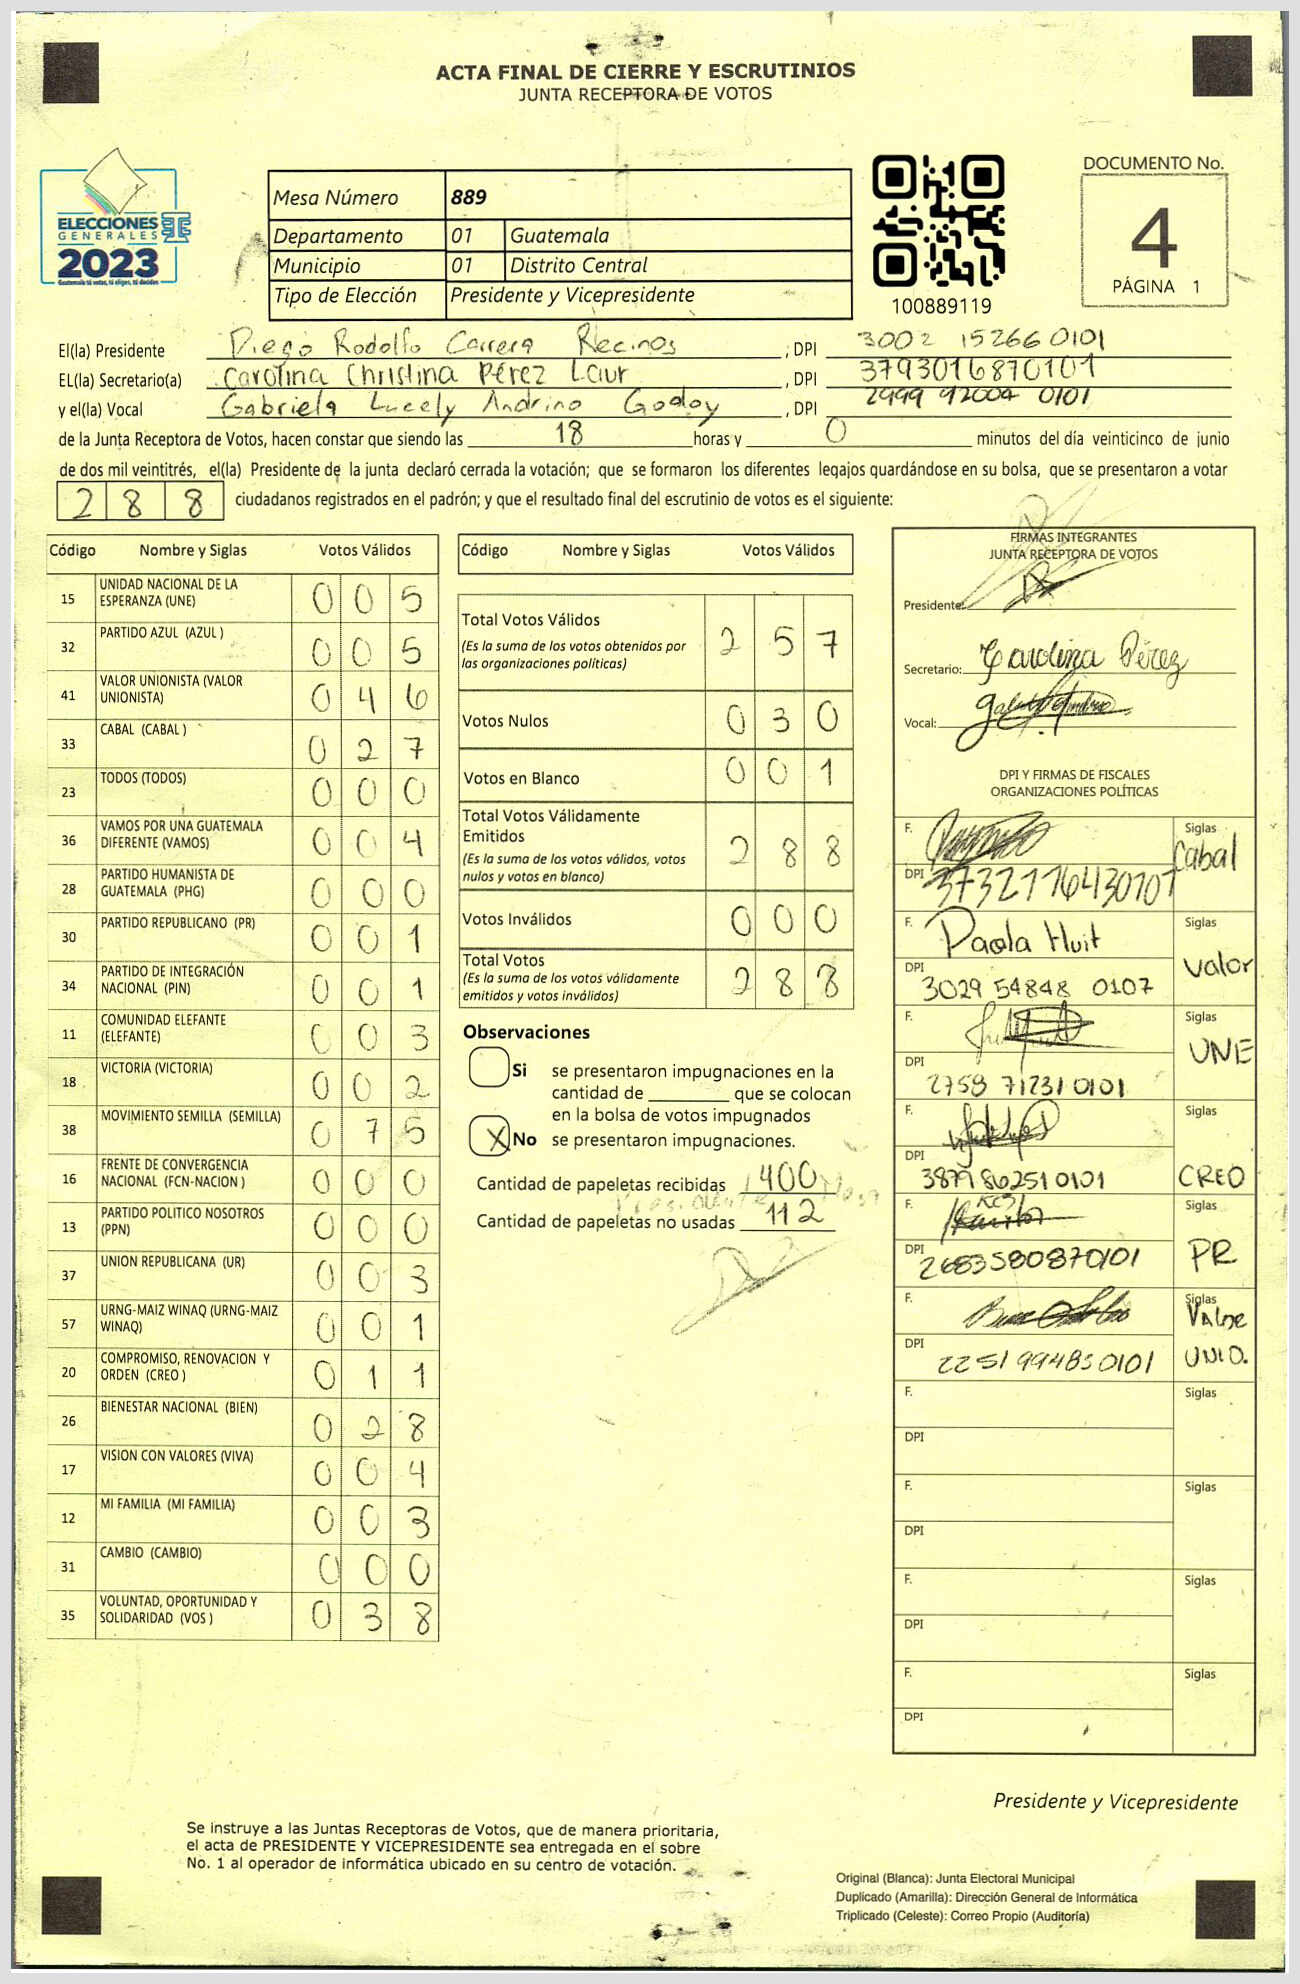 ACTA FINAL DE CIERRE Y ESCRUTINIOS
JUNTA RECEPTORA DE VOTOS
ELECCIONES
GENERALES
2023
Guatemala tú votas, tú eliges, tú decides
Mesa Número 889
Departamento 01 Guatemala
Municipio 01 Distrito Central
Tipo de Elección Presidente y Vicepresidente
100889119
DOCUMENTO No.
4
PÁGINA 1
El(la) Presidente Diego Rodolfo Carrera Recinos ; DPI 3002 15266 0101
EL(la) Secretario(a) Carolina Christina Pérez Laur , DPI 3793016870101
y el(la) Vocal Gabriela Lucely Andrino Godoy , DPI 2999 92004 0101
de la Junta Receptora de Votos, hacen constar que siendo las 18 horas y 0 minutos del día veinticinco de junio
de dos mil veintitrés, el(la) Presidente de la junta declaró cerrada la votación; que se formaron los diferentes legajos guardándose en su bolsa, que se presentaron a votar
288 ciudadanos registrados en el padrón; y que el resultado final del escrutinio de votos es el siguiente:
Código Nombre y Siglas Votos Válidos
15 UNIDAD NACIONAL DE LA ESPERANZA (UNE) 005
32 PARTIDO AZUL (AZUL ) 005
41 VALOR UNIONISTA (VALOR UNIONISTA) 046
33 CABAL (CABAL ) 027
23 TODOS (TODOS) 000
36 VAMOS POR UNA GUATEMALA DIFERENTE (VAMOS) 004
28 PARTIDO HUMANISTA DE GUATEMALA (PHG) 000
30 PARTIDO REPUBLICANO (PR) 001
34 PARTIDO DE INTEGRACIÓN NACIONAL (PIN) 001
11 COMUNIDAD ELEFANTE (ELEFANTE) 003
18 VICTORIA (VICTORIA) 002
38 MOVIMIENTO SEMILLA (SEMILLA) 075
16 FRENTE DE CONVERGENCIA NACIONAL (FCN-NACION ) 000
13 PARTIDO POLITICO NOSOTROS (PPN) 000
37 UNION REPUBLICANA (UR) 003
57 URNG-MAIZ WINAQ (URNG-MAIZ WINAQ) 001
20 COMPROMISO, RENOVACION Y ORDEN (CREO ) 011
26 BIENESTAR NACIONAL (BIEN) 028
17 VISION CON VALORES (VIVA) 004
12 MI FAMILIA (MI FAMILIA) 003
31 CAMBIO (CAMBIO) 000
35 VOLUNTAD, OPORTUNIDAD Y SOLIDARIDAD (VOS ) 038
Código Nombre y Siglas Votos Válidos
Total Votos Válidos 257
(Es la suma de los votos obtenidos por
las organizaciones politicas)
Votos Nulos 030
Votos en Blanco 001
Total Votos Válidamente
Emitidos 288
(Es la suma de los votos válidos, votos
nulos y votos en blanco)
Votos Inválidos 000
Total Votos 288
(Es la suma de los votos válidamente
emitidos y votos inválidos)
Observaciones
Si se presentaron impugnaciones en la
cantidad de ________ que se colocan
en la bolsa de votos impugnados
X No se presentaron impugnaciones.
Cantidad de papeletas recibidas 400
Cantidad de papeletas no usadas 112
FIRMAS INTEGRANTES
JUNTA RECEPTORA DE VOTOS
Presidente:
Secretario: Carolina Pérez
Vocal:
DPI Y FIRMAS DE FISCALES
ORGANIZACIONES POLÍTICAS
F. Siglas Cabal
DPI
F. Paola Huit Siglas Valor
DPI 3029 54848 0107
F. Siglas UNE
DPI 2758 71231 0101
F. Siglas CREO
DPI 3879 86251 0101
F. Siglas PR
DPI 2683580870101
F. Siglas Valor UNIO.
DPI 2251 99485 0101
F. Siglas
DPI
F. Siglas
DPI
F. Siglas
DPI
F. Siglas
DPI
Presidente y Vicepresidente
Se instruye a las Juntas Receptoras de Votos, que de manera prioritaria,
el acta de PRESIDENTE Y VICEPRESIDENTE sea entregada en el sobre
No. 1 al operador de informática ubicado en su centro de votación.
Original (Blanca): Junta Electoral Municipal
Duplicado (Amarilla): Dirección General de Informática
Triplicado (Celeste): Correo Propio (Auditoría)